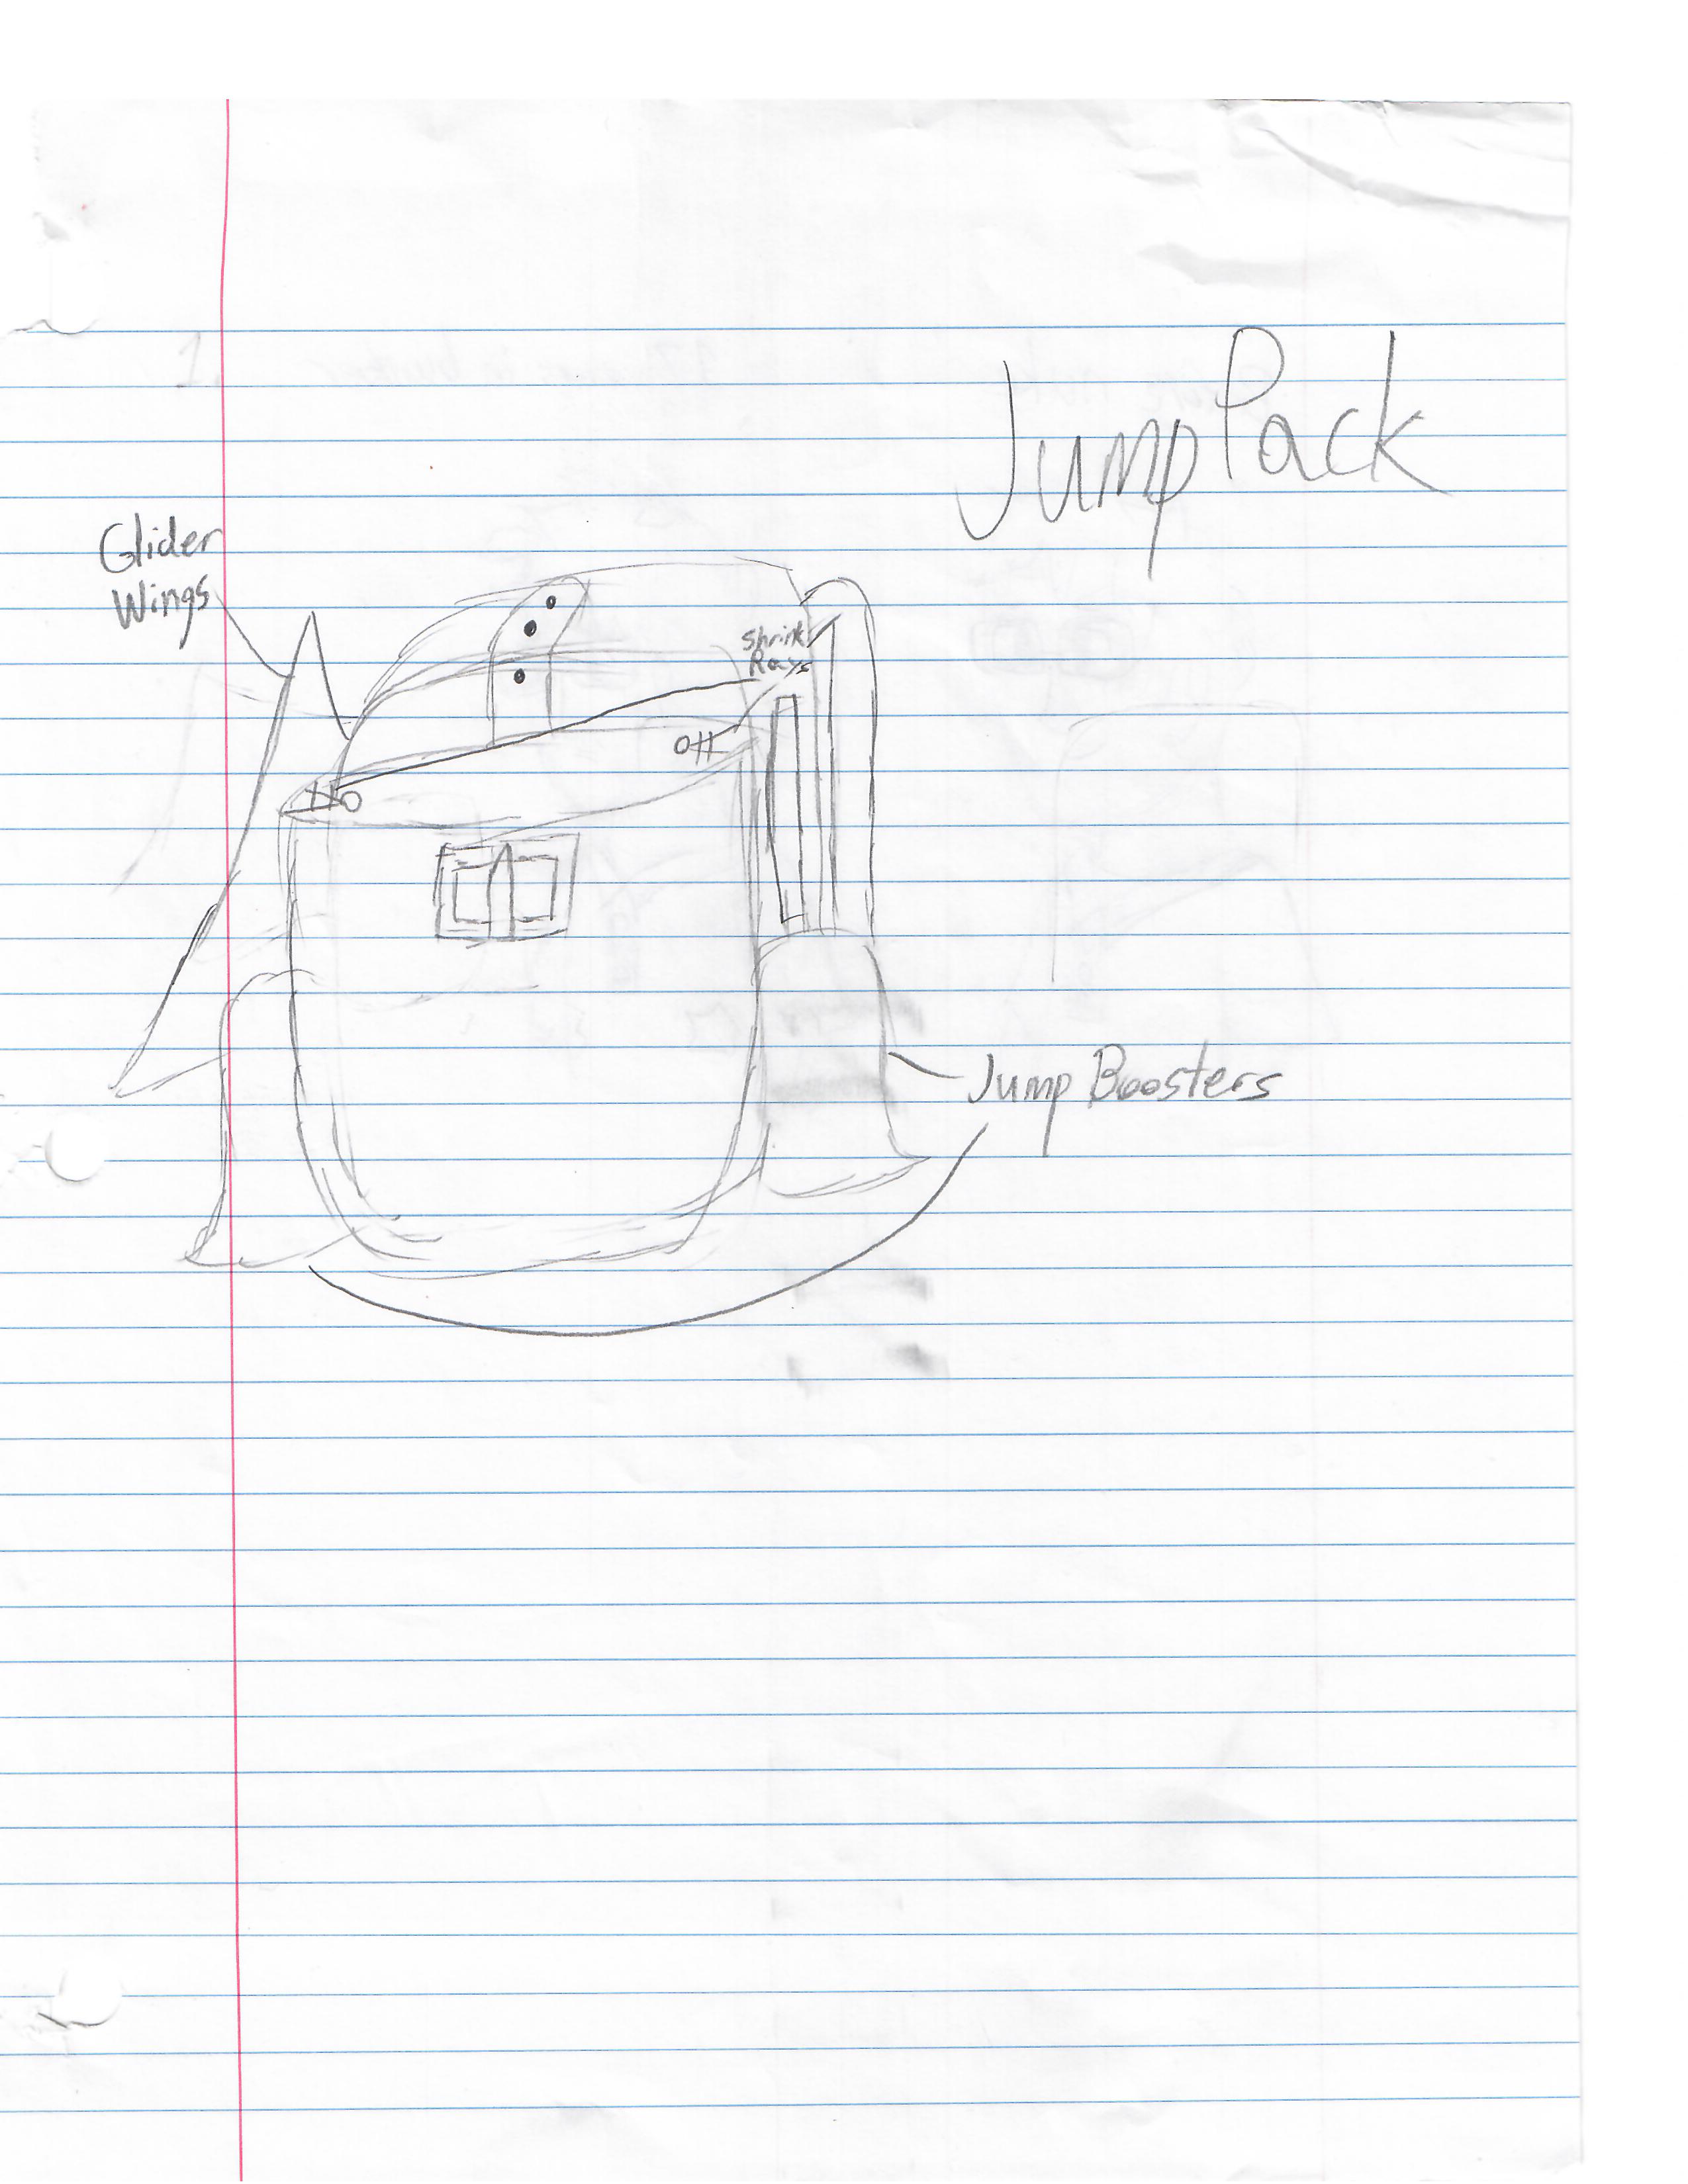 JumpPack
Glider
Wings
Shrink
Rays
Jump Boosters